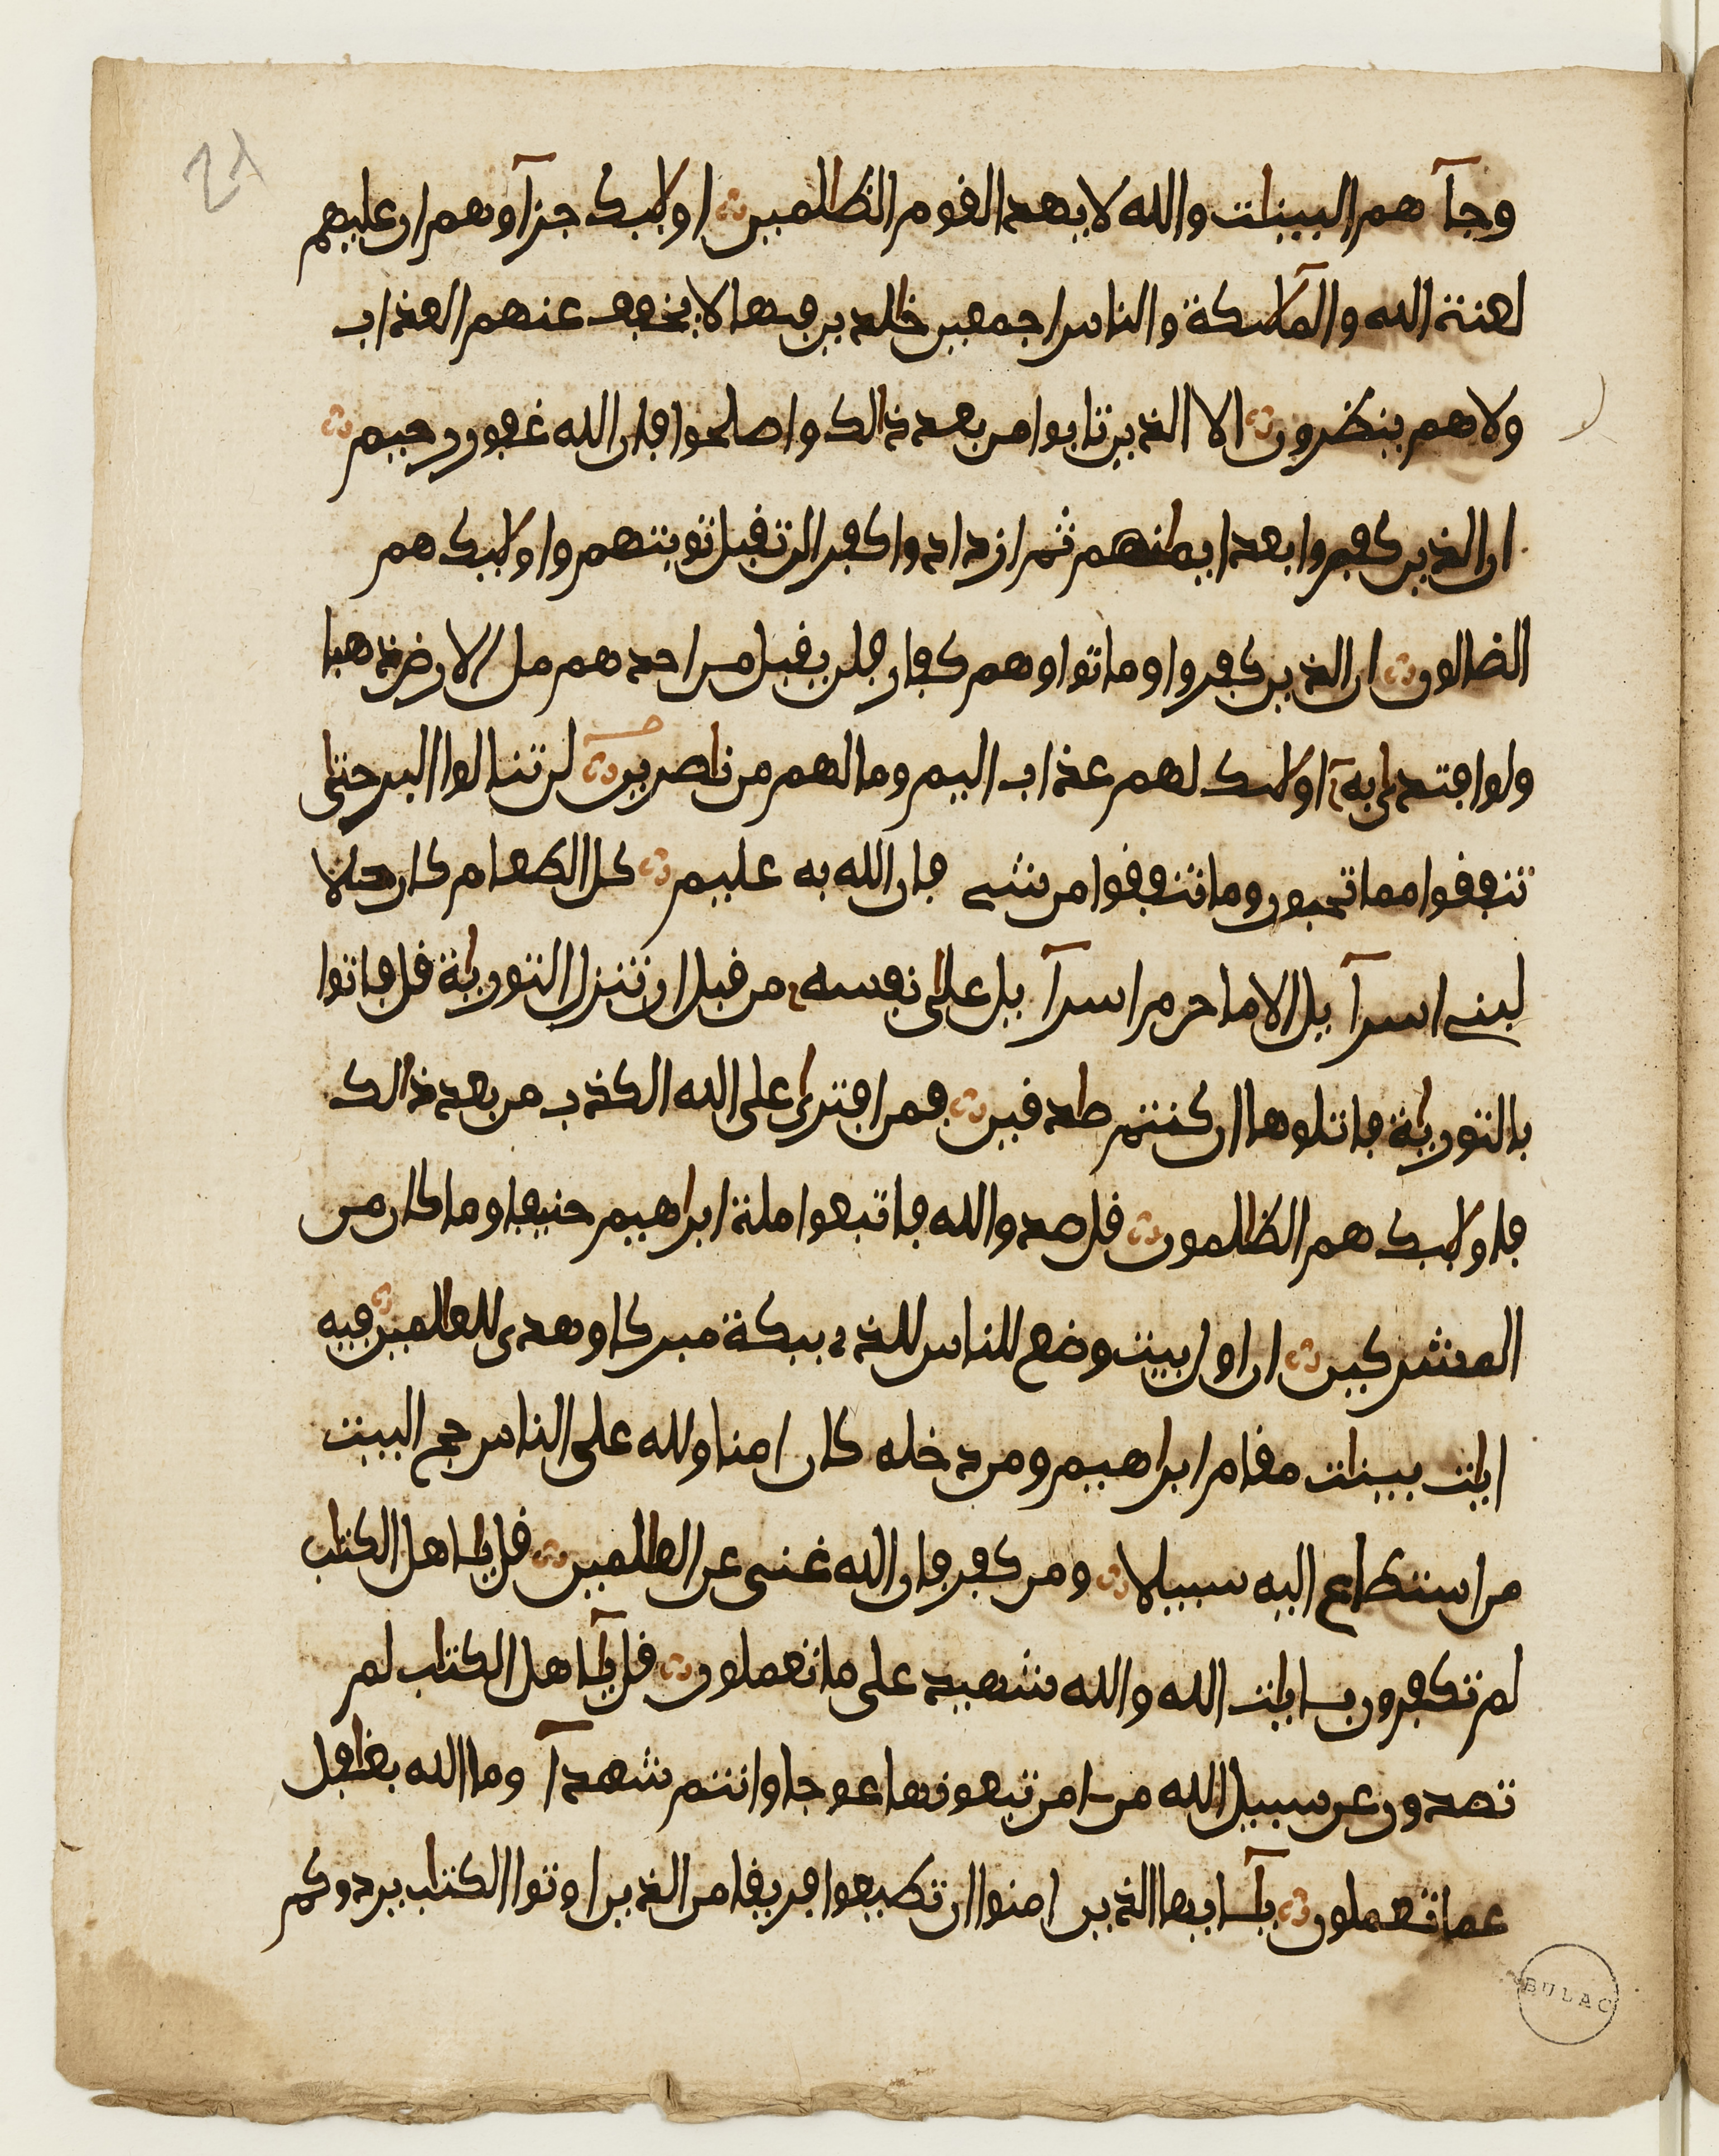 28
وجآ هم البينات والله لا يهد القوم الظلمين اولايك جزآوهم ان عليهم
لعنة الله والملآيكة والناس اجمعين خالدين فيها لا يخفف عنهم العذاب
ولا هم ينظرون الا الذين تابوا من بعد ذالك واصلحوا فان الله غفور رحيم
ان الذين كفروا بعد ايمانهم ثم ازدادوا كفرا لن تقبل توبتهم واولايك هم
الضالون ان الذين كفروا وماتوا وهم كفار فلن يقبل من احدهم مل الارض ذهبا
ولو افتدى به اولايك لهم عذاب اليم وما لهم من ناصرين لن تنالوا البر حتى
تنفقوا مما تحبون وما تنفقوا من شي فان الله به عليم كل الطعام كان حلا
لبني اسرآ يل الا ما حرم اسرآ يل على نفسه من قبل ان تنزل التورية قل فاتوا
بالتورية فاتلوها ان كنتم صدقين فمن افترى على الله الكذب من بعد ذالك
فاولايك هم الظلمون قل صدق الله فاتبعوا ملة ابراهيم حنيفا وما كان من
المشركين ان اول بيت وضع للناس للذي ببكة مبركا وهدى للعالمين فيه
ايات بينات مقام ابراهيم ومن دخله كان امنا ولله على الناس حج البيت
من استطاع اليه سبيلا ومن كفر فان الله غني عن العالمين قل ياهل الكتاب
لم تكفرون بايات الله والله شهيد على ما تعملون قل يآهل الكتاب لم
تصدون عن سبيل الله من امن تبغونها عوجا وانتم شهدآ وما الله بغافل
عما تعملون يآيها الذين امنوا ان تطيعوا فريقا من الذين اوتوا الكتاب يردوكم
BULAC